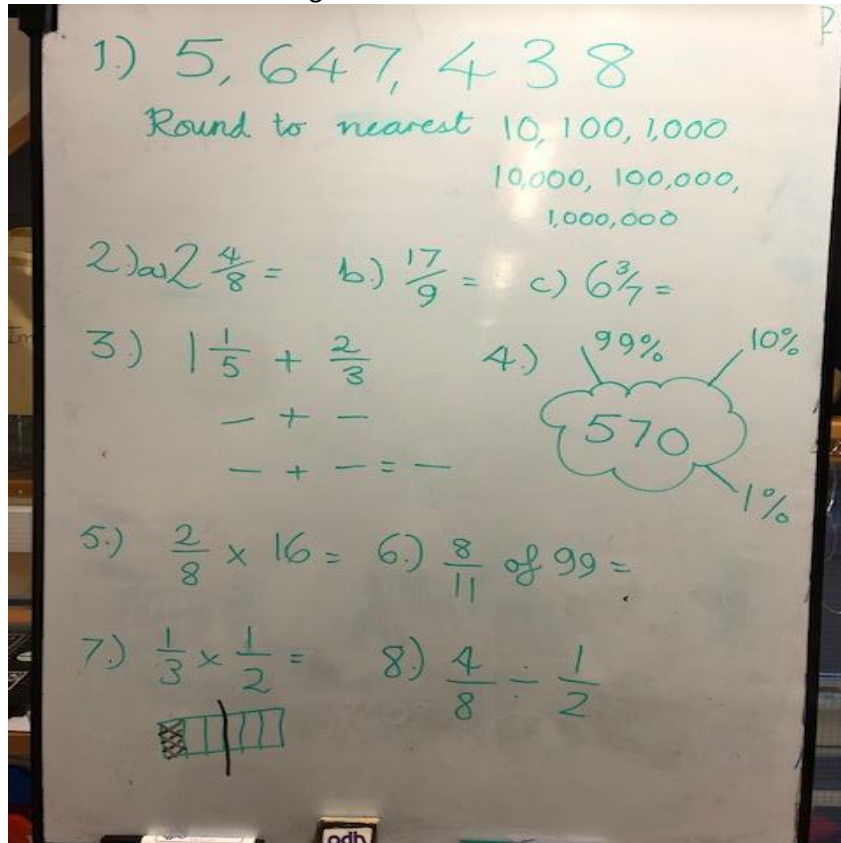 1.) 5,647,438
Round to nearest 10, 100, 1,000
10,000, 100,000,
1,000,000
2.) a) 2 4/8 = b.) 17/9 = c) 6 3/7 =
3.) 1 1/5 + 2/3
— + —
— + — = —
4.) 99% 10%
570
1%
5.) 2/8 x 16 = 6.) 8/11 of 99 =
7.) 1/3 x 1/2 = 8.) 4/8 ÷ 1/2